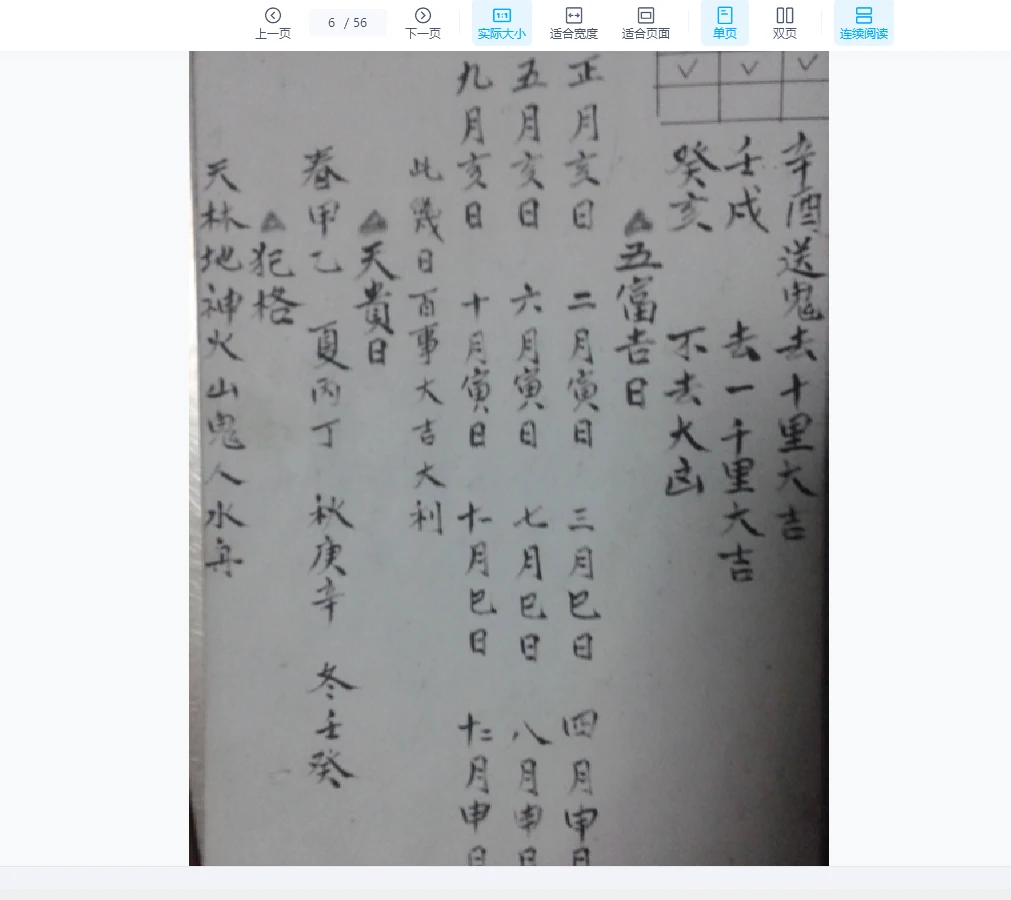 上一页
6 / 56
下一页
1:1
实际大小
适合宽度
适合页面
单页
双页
连续阅读
辛酉送鬼去十里大吉
壬戌 去一千里大吉
癸亥 不去大凶
五富吉日
正月亥日 二月寅日 三月巳日 四月申日
五月亥日 六月寅日 七月巳日 八月申日
九月亥日 十月寅日 十一月巳日 十二月申日
此幾日百事大吉大利
天貴日
春甲乙 夏丙丁 秋庚辛 冬壬癸
犯格
天林地神火山鬼人水舟